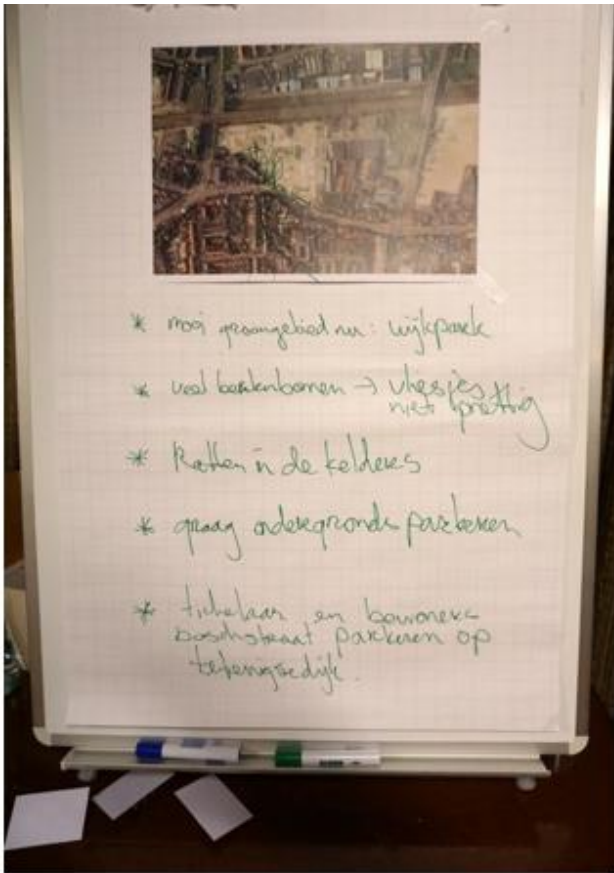 * mooi groengebied nu: wijkpark
* veel berkenbomen → vliesjes
niet prettig
* Ratten in de kelders
* graag ondergronds parkeren
* tichelaar en bewoners
boschstraat parkeren op